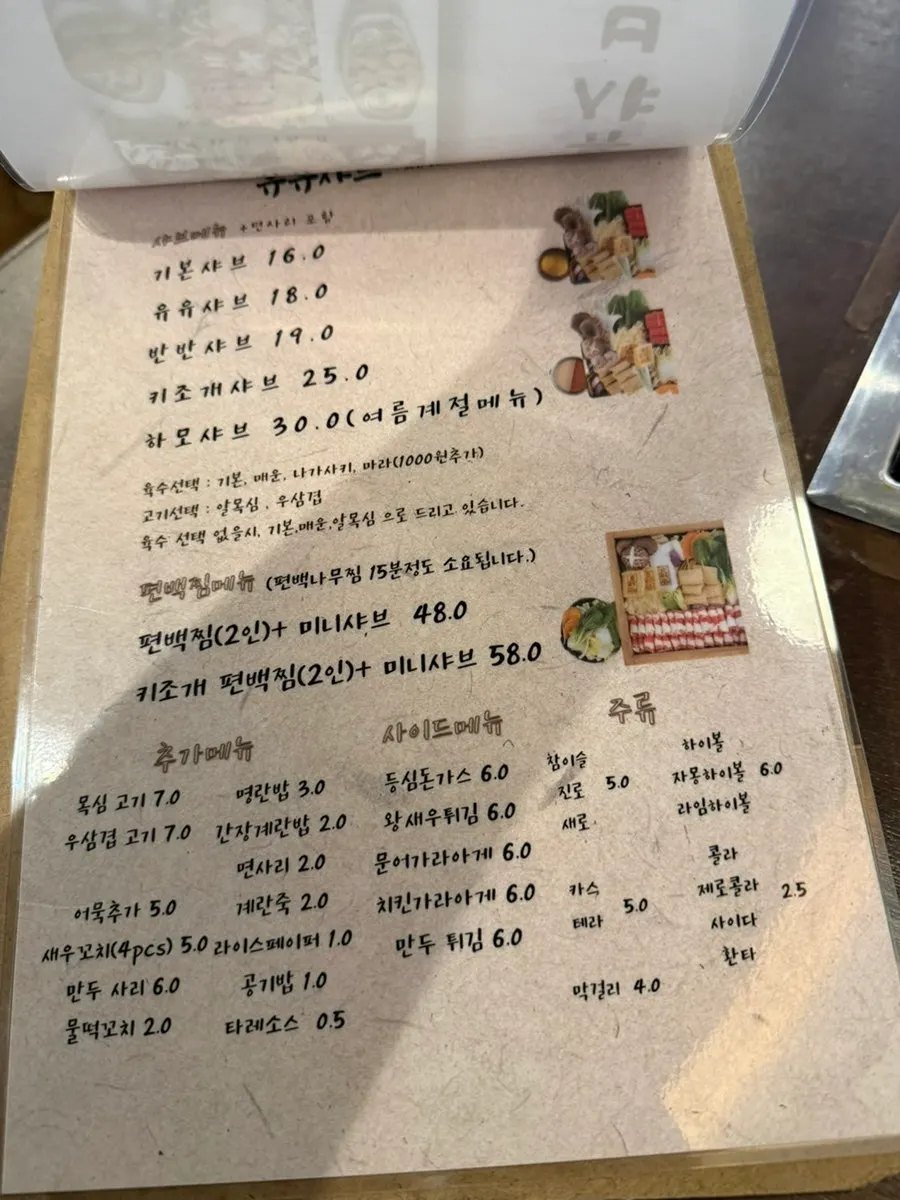 유유샤브
샤브메뉴 +면사리 포함
기본샤브 16.0
유유샤브 18.0
반반샤브 19.0
키조개샤브 25.0
하모샤브 30.0(여름계절메뉴)
육수선택 : 기본, 매운, 나가사키, 마라(1000원추가)
고기선택 : 알목심, 우삼겹
육수 선택 없을시, 기본,매운,알목심 으로 드리고 있습니다.
편백찜메뉴 (편백나무찜 15분정도 소요됩니다.)
편백찜(2인)+ 미니샤브 48.0
키조개 편백찜(2인)+ 미니샤브 58.0
추가메뉴
목심 고기 7.0
우삼겹 고기 7.0
어묵추가 5.0
새우꼬치(4pcs) 5.0
만두 사리 6.0
물떡꼬치 2.0
명란밥 3.0
간장계란밥 2.0
면사리 2.0
계란죽 2.0
라이스페이퍼 1.0
공기밥 1.0
타레소스 0.5
사이드메뉴
등심돈가스 6.0
왕새우튀김 6.0
문어가라아게 6.0
치킨가라아게 6.0
만두 튀김 6.0
주류
참이슬
진로 5.0
새로
카스
테라 5.0
막걸리 4.0
하이볼
자몽하이볼 6.0
라임하이볼
콜라
제로콜라 2.5
사이다
환타